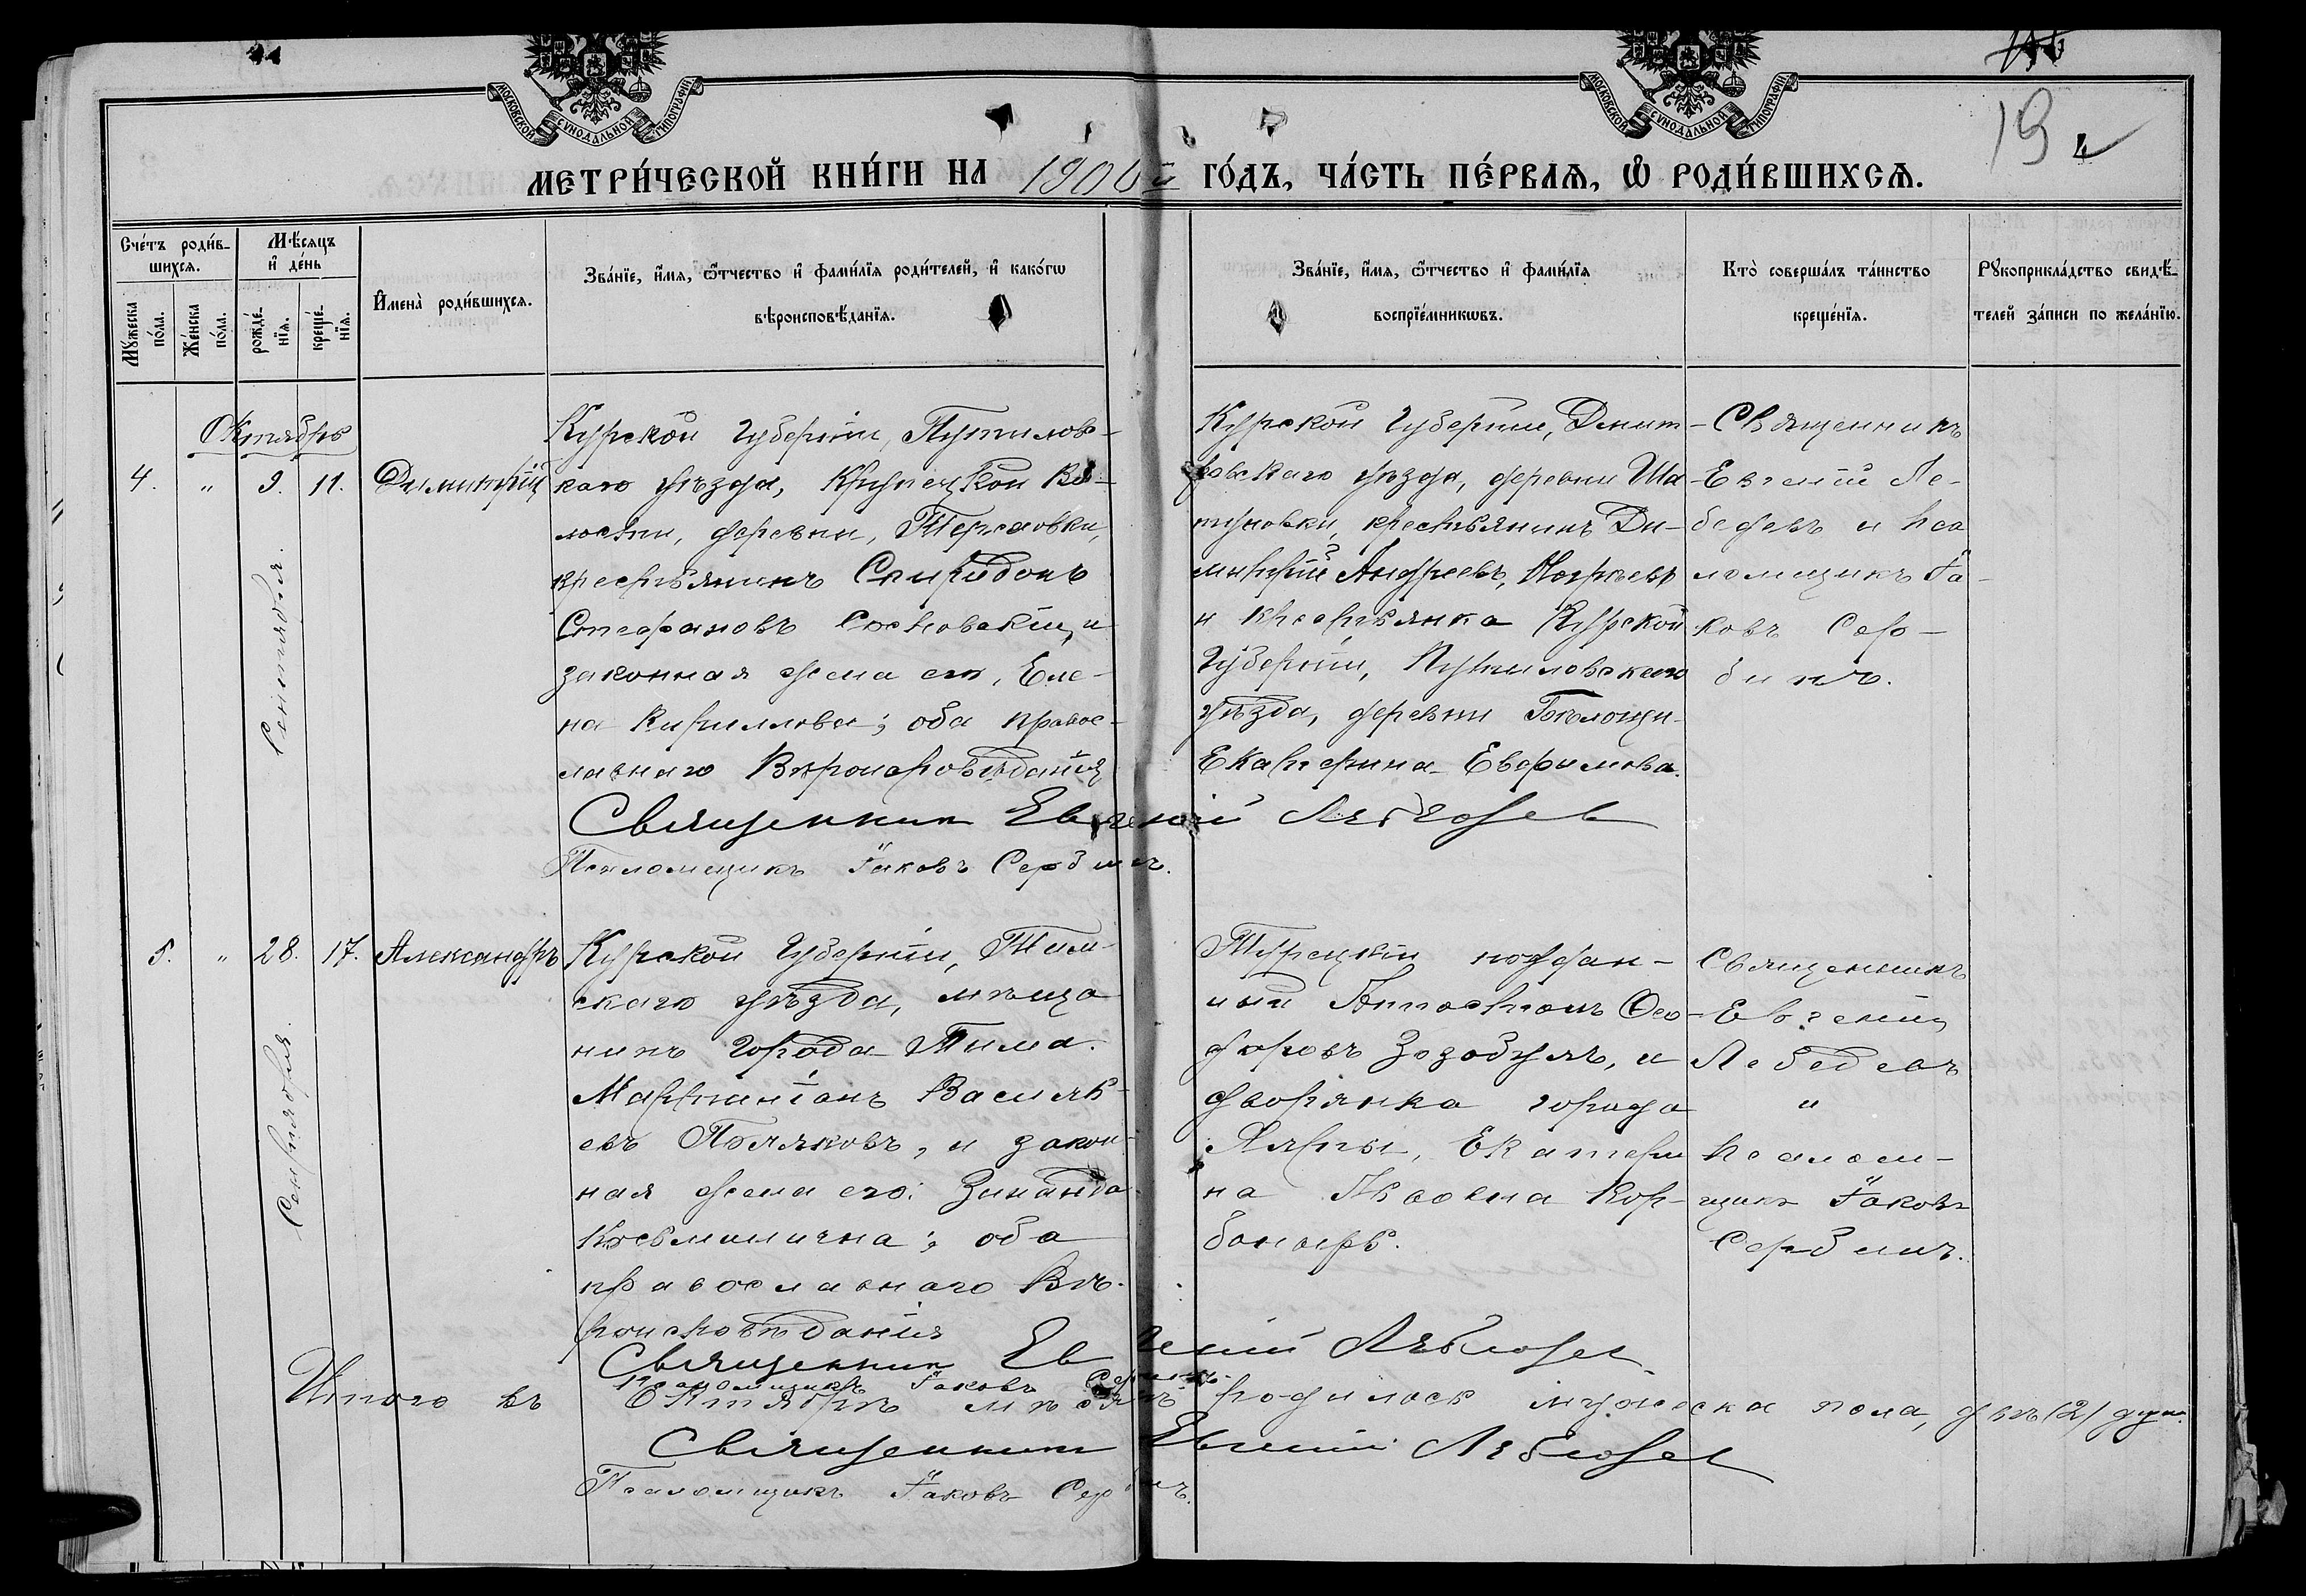 МОСКОВСКОЙ СѴНОДАЛЬНОЙ ТИПОГРАФІИ
МОСКОВСКОЙ СѴНОДАЛЬНОЙ ТИПОГРАФІИ
19
МЕТРИ́ЧЕСКОЙ КНИ́ГИ НА 1906й ГО́ДЪ, ЧА́СТЬ ПЕ́РВАѦ, Ѡ РОДИ́ВШИХСѦ.
Сче́тъ роди́в-
шихсѧ.
Мꙋ́жеска
по́ла.
Же́нска
по́ла.
Мѣ́сѧцъ
и҆ де́нь
рожде́-
нїѧ.
креще́-
нїѧ.
И҆мена̀ роди́вшихсѧ.
Зва́нїе, и҆́мѧ, ѻ҆́тчество и҆ фами́лїѧ роди́телей, и҆ како́гѡ
вѣроисповѣ́данїѧ.
Зва́нїе, и҆́мѧ, ѻ҆́тчество и҆ фами́лїѧ
воспрїе́мникѡвъ.
Кто̀ соверша́лъ та́инство
креще́нїѧ.
Рꙋкоприкла́дство свидѣ́-
телей за́писи по жела́нїю.
Октябрь
4. " 9. 11.
Сентября.
Димитрій
Курской губерніи, Путилов-
каго уѣзда, Крупецкой Во-
лости, деревни, Терховки,
крестьянинъ Спиридонъ
Стефановъ Сосновскій, и
законная жена его, Еле-
на Кириллова; оба правос-
лавнаго Вѣроисповѣданія
Курской Губерніи, Дмит-
ровскаго уѣзда, деревни Ша-
тиловки, крестьянинъ Ди-
митрій Андреевъ,
и крестьянка Курской
Губерніи, Путиловскаго
уѣзда, деревни
Екатерина Евфимова.
Священникъ
Евгеній Ле-
бедевъ и пса
ломщикъ Іа-
ковъ Сер-
бинъ.
Священник Евгений Лебедев
Псаломщикъ Іаковъ Сербинъ.
5. " 28. 17.
Сентября.
Александръ
Курской Губерніи, Тим-
скаго уѣзда, мѣща
нинъ города Тима.
Мартиніанъ Василь-
евъ Поляковъ, и закон-
ная жена его: Зинаида
Косьминична; оба
православнаго Вѣ-
роисповѣданія
Турецкій поддан-
ный Анастасъ Фео-
доровъ, и
дворянка города
Ялты, Екатери
на Львовна Кор-
бонарь.
Священникъ
Евгеній
Лебедевъ
и
псалом-
щикъ Іаковъ
Сербинъ.
Священник Евгений Лебедев
Псаломщикъ Іаковъ Сербинъ.
Итого въ Октябрѣ мѣсяцѣ родилось мужеска пола, двѣ (2) души.
Священник Евгений Лебедев
Псаломщикъ Іаковъ Сербинъ.